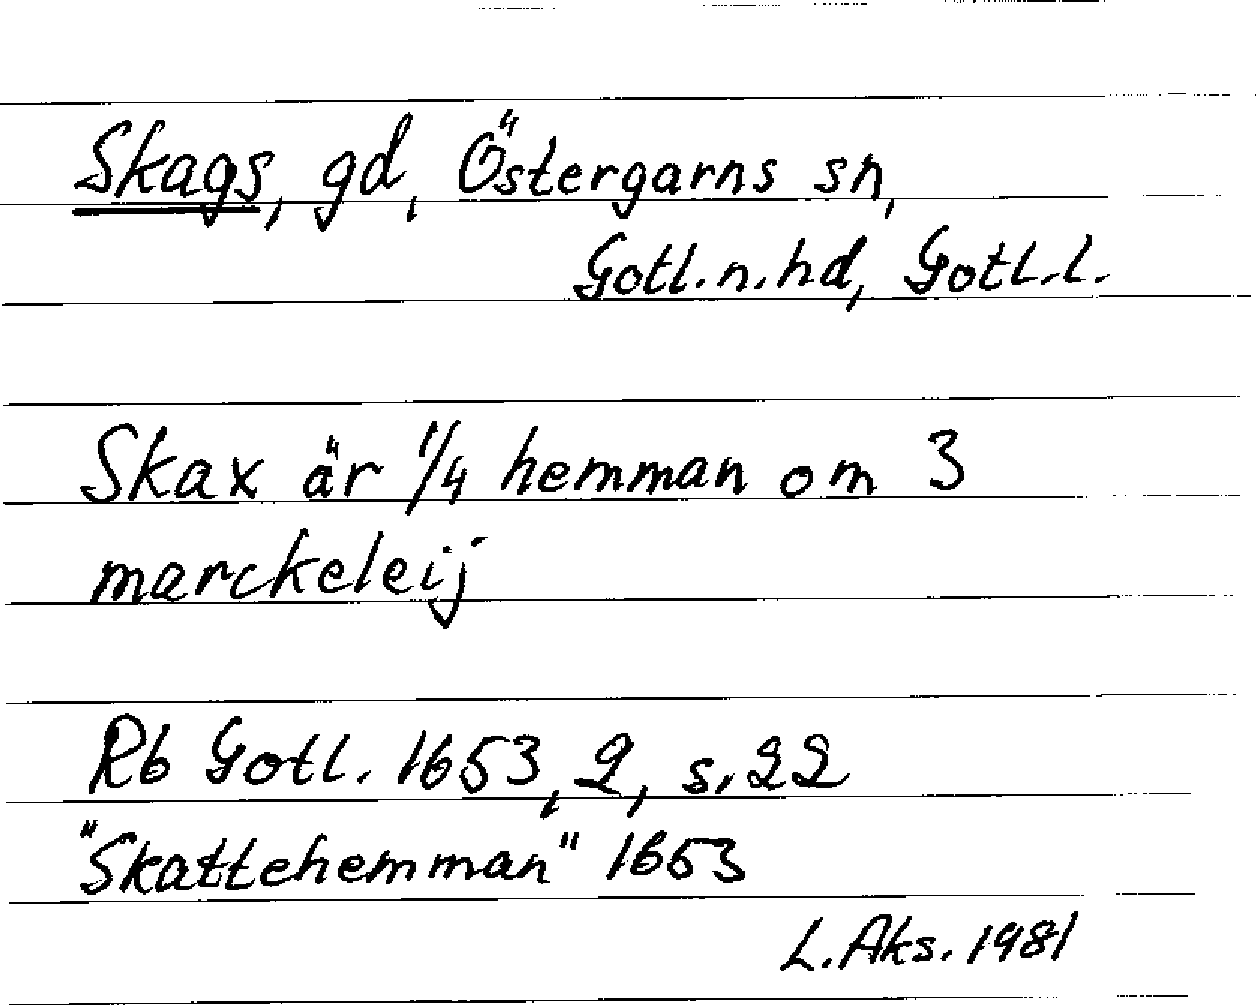 Skags, gd, Östergarns sn,
Gotl.n.hd, Gotl.l.
Skax är 1/4 hemman om 3
marckeleij
Rb Gotl. 1653, 2, s. 22
"Skattehemman" 1653
L.Aks. 1981